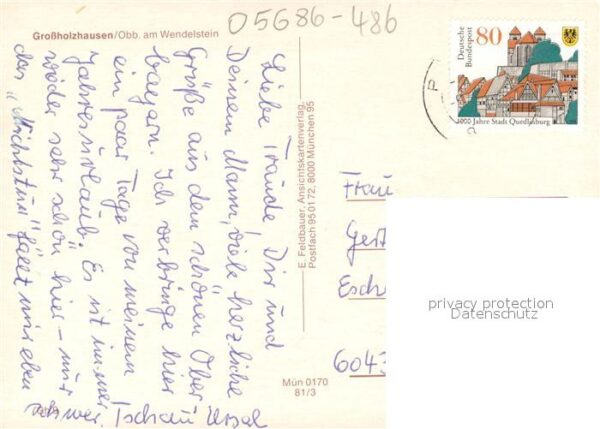 05686-486
Großholzhausen/Obb. am Wendelstein
Liebe Traude, Dir und
Deinem Mann, viele herzliche
Grüße aus dem schönen Ober-
bayern. Ich verbringe hier
ein paar Tage von meinem
Jahresurlaub. Es ist immer
wieder sehr schön hier – nur
das „Nichtstun" fällt mir eben
schwer. Tschau Ursel
E. Feldbauer, Ansichtskartenverlag,
Postfach 95 01 72, 8000 München 95
Mün 0170
81/3
Deutsche
Bundespost
80
1000 Jahre Stadt Quedlinburg
Frau
Esch
6043
privacy protection
Datenschutz